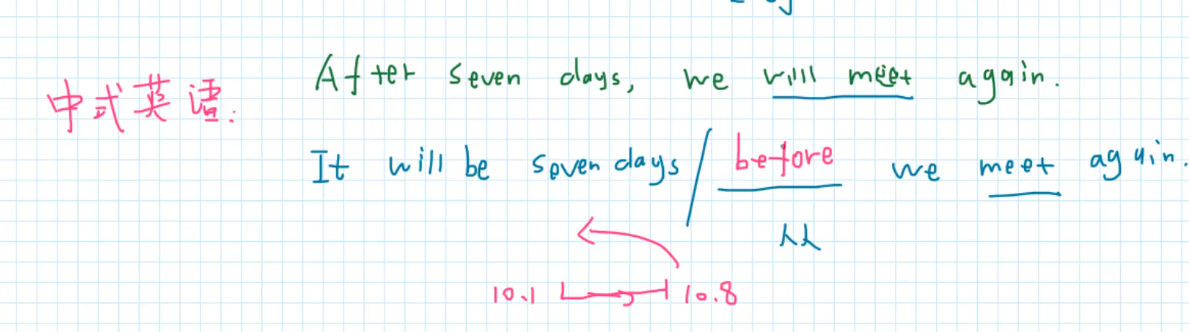 After seven days, we will meet again.
中式英语:
It will be seven days / before we meet again.
从
10.1 10.8